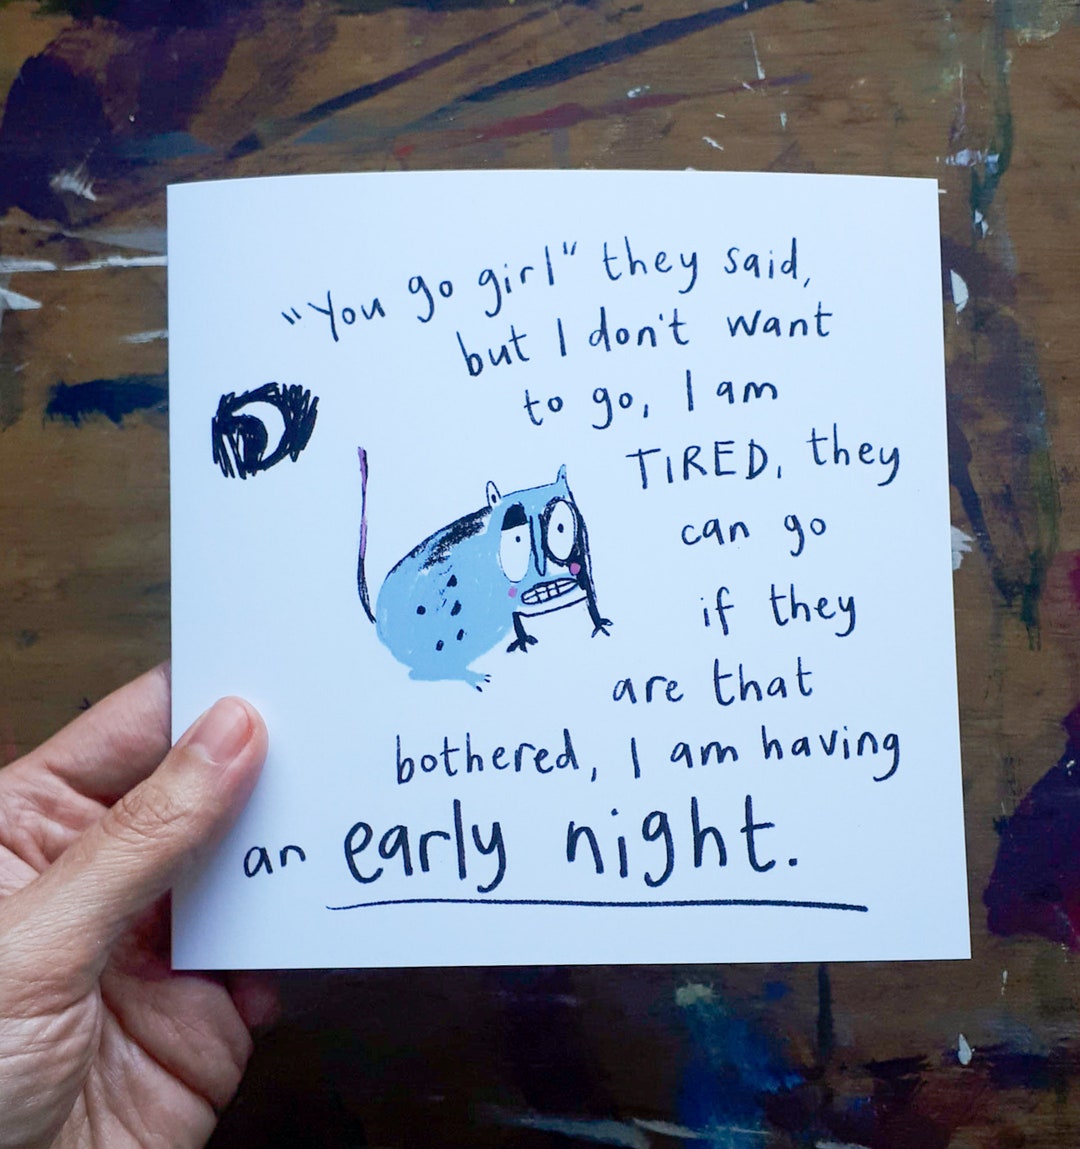 "You go girl" they said,
but I don't want
to go, I am
TIRED, they
can go
if they
are that
bothered, I am having
an early night.